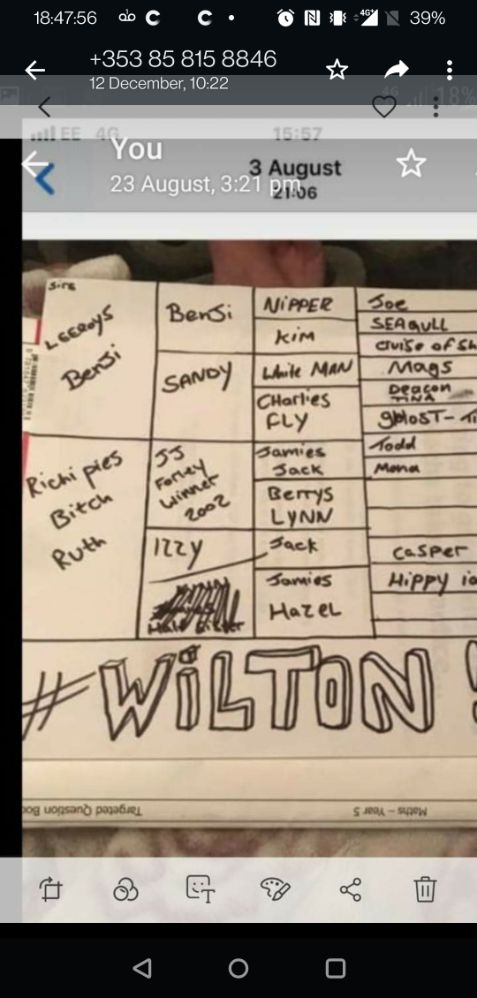 18:47:56
39%
+353 85 815 8846
12 December, 10:22
4G 18%
EE 4G
15:57
You
3 August
23 August, 3:21 pm
21:06
Sire
LEEROYS
Benji
Benji
SANDY
NiPPER
Kim
White MAN
CHarlies
FLY
Joe
SEAGULL
cruise of Sh
Mags
Deacon
TINA
ghost-Ti
Richi pies
Bitch
Ruth
JJ
Forley
Winner
2002
IZZY
Half Sister
Jamies
Jack
Berrys
LYNN
Jack
Jamies
HaZeL
Todd
Mona
Casper
Hippy
#WiLTON!
Targeted Question Boo
Maths – Year 5